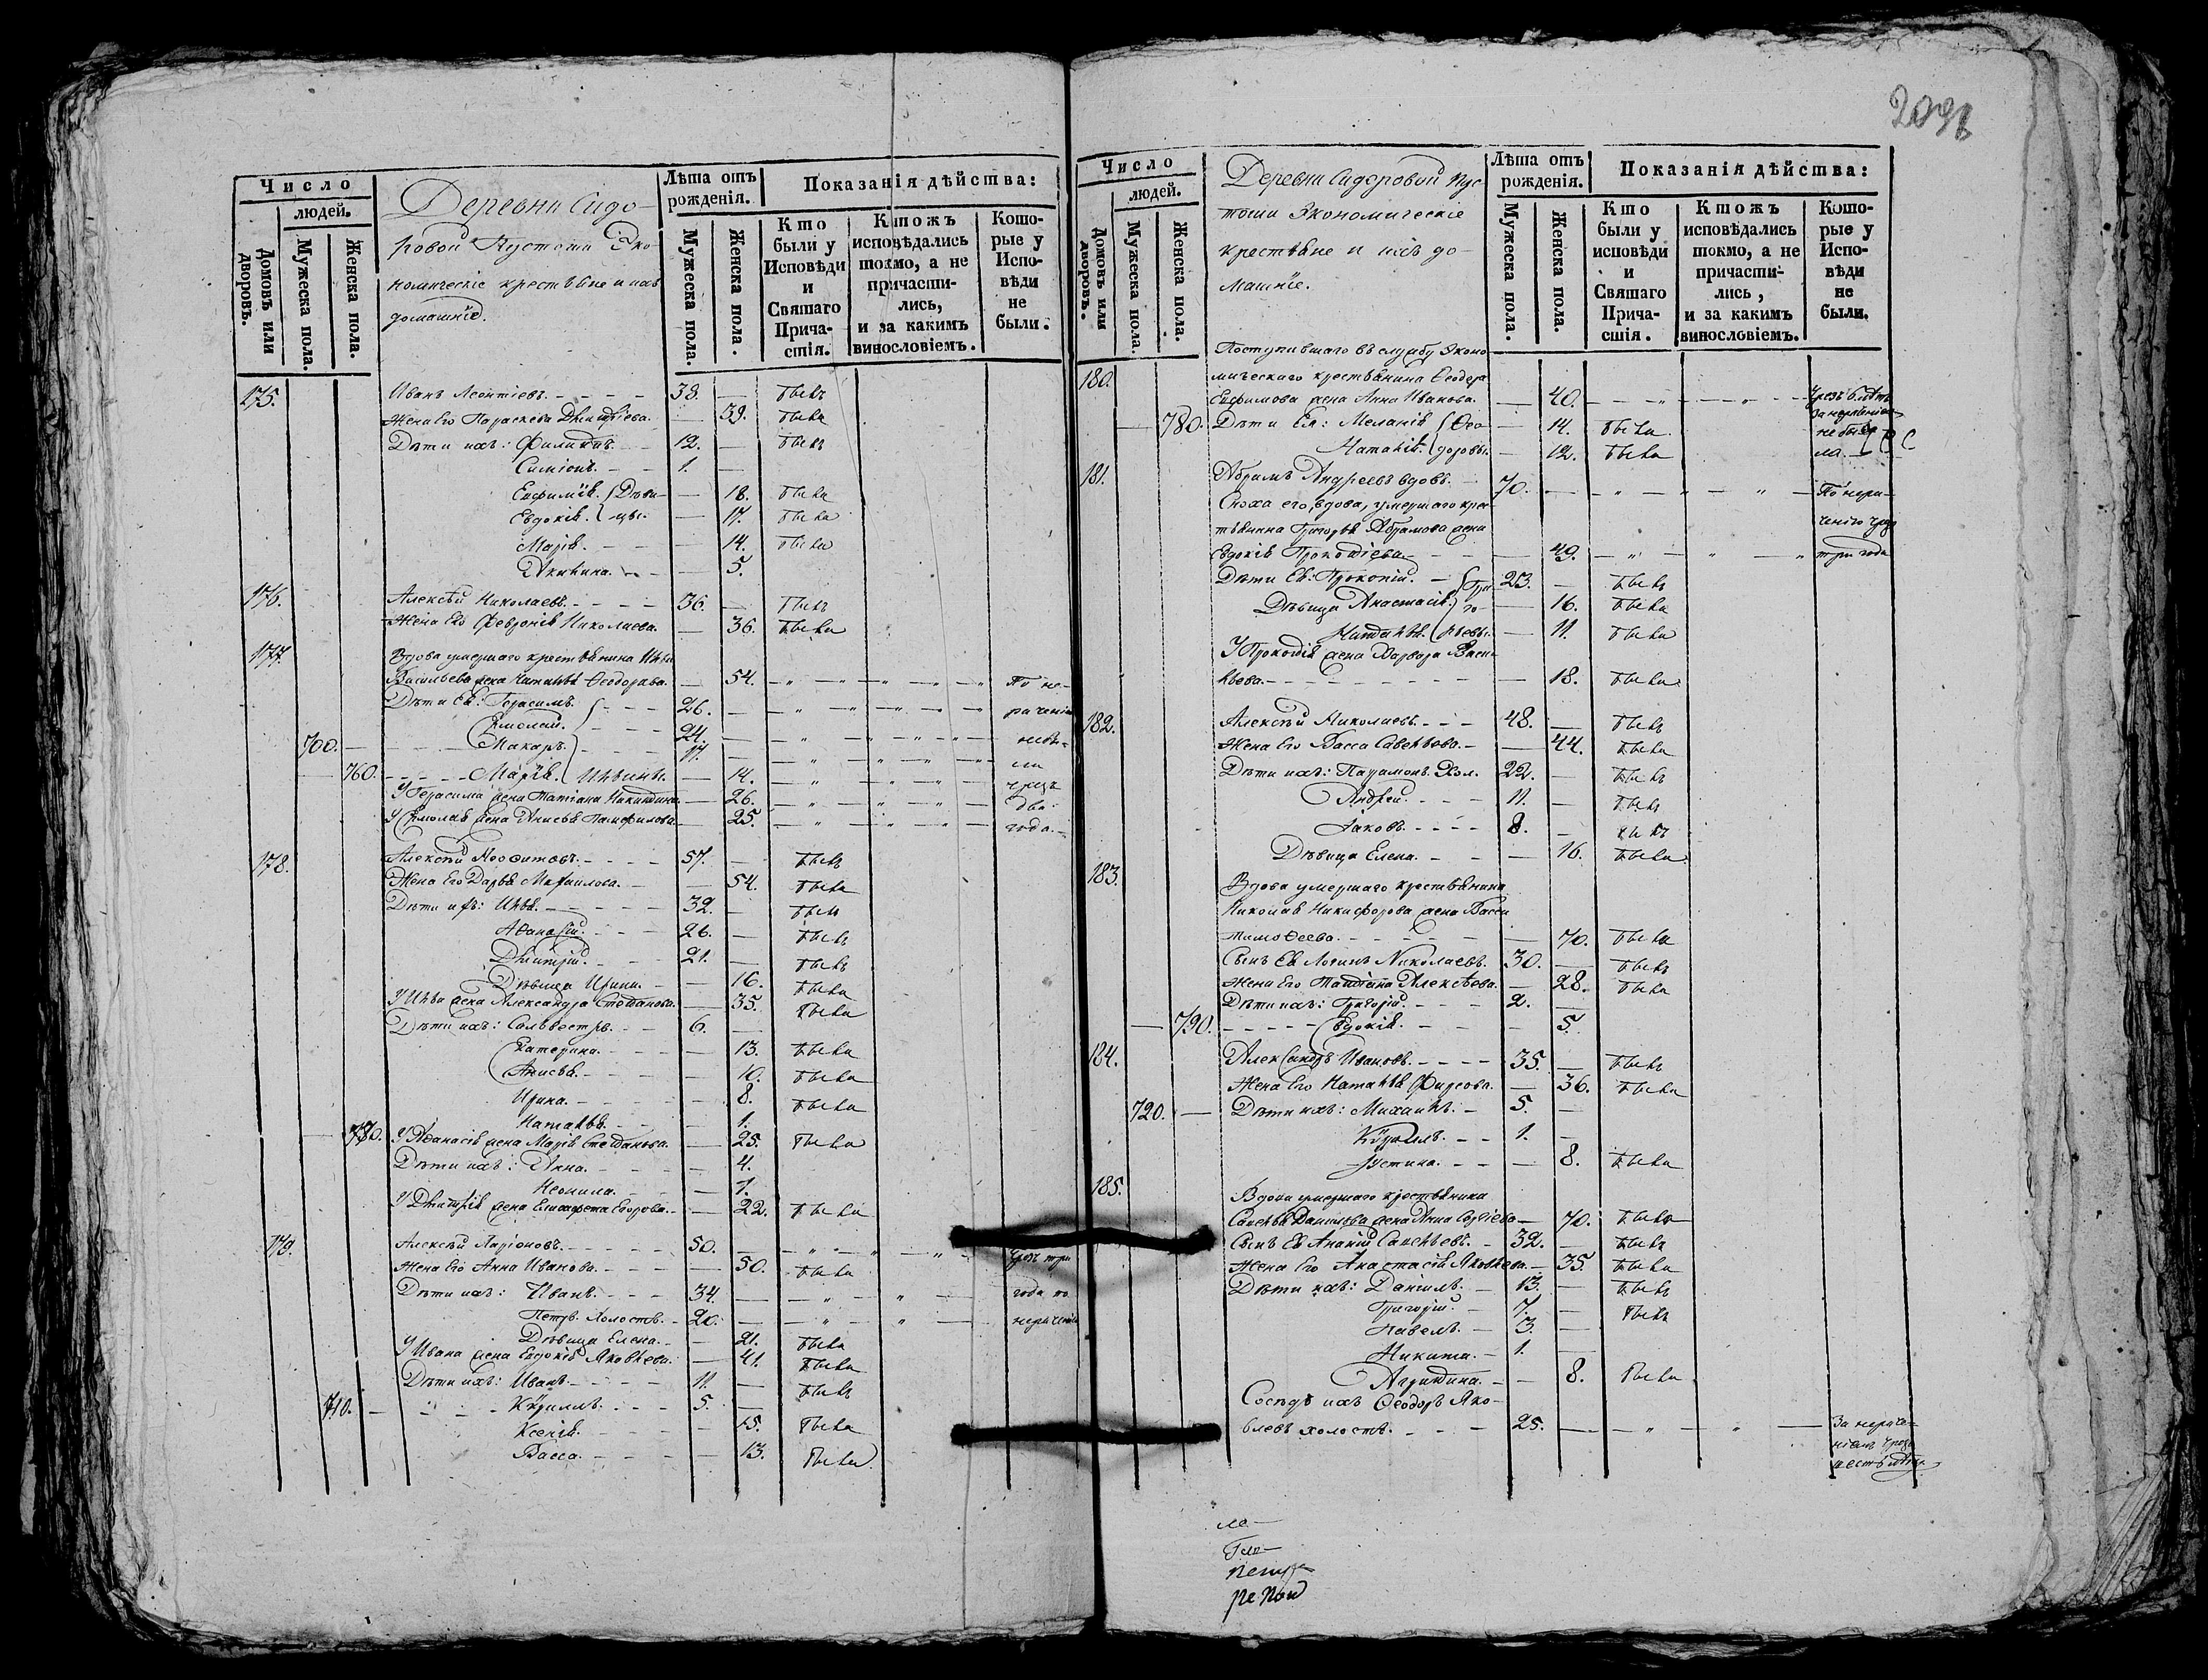 Число
людей.
Домовъ или дворовъ.
Мужеска пола.
Женска пола.
Деревни Сидо-
ровой Пустоши Эко-
номическіе крестьяне и ихъ
домашніе.
Лѣта отъ рожденія.
Мужеска пола.
Женска пола.
Показанія дѣйства:
Кто были у Исповѣди и Святаго Прича-стія.
Ктожъ исповѣдались токмо, а не причасти-лись, и за какимъ винословіемъ.
Кото-рые у Испо-вѣди не были.
175. Иванъ Леонтіевъ. 38. — былъ
Жена Его Параскева Дмитріева. — 39. была
Дѣти ихъ: Филиппъ. 12. — былъ
Симіонъ. 1. —
Евфимія. Дѣви- — 18. была
Евдокія. цы. — 17. была
Марія. — 14. была
Акилина. — 5.
176. Алексѣй Николаевъ. 36. — былъ
Жена Его Февронія Николаева. — 36. была
177. Вдова умершаго крестьянина Ильи
Васильева жена Наталья Ѳеодорова. — 54. По не-
Дѣти Ея: Герасимъ. 26. — раченію
Ермолай. 24. — небы-
700. Макаръ. 17. — ли
760. Марія. Ильины. — 14. чрезъ
У Герасима жена Татіана Никитина. — 26. два
У Ермолая жена Анисья Памфилова. — 25. года.
178. Алексѣй 57. — былъ
Жена Его Дарья Михайлова. — 54. была
Дѣти ихъ: Илья. 32. — былъ
Аѳанасій. 26. — былъ
Дмитрій. 21. — былъ
Дѣвица Ирина. — 16. была
У Ильи жена Александра Степанова. — 35. была
Дѣти ихъ: Сильвестръ. 6. —
Екатерина. — 13. была
Анисья. — 10. была
Ирина. — 8. была
Наталья. — 1.
770. У Аѳанасія жена Марія Степанова. — 25. была
Дѣти ихъ: Анна. — 4.
Неонила. — 1.
У Дмитрія жена Елисавета Егорова. — 22. была
179. Алексѣй Ларіоновъ. 50. — Чрезъ три
Жена Его Анна Иванова. — 50. была
Дѣти ихъ: Иванъ. 34. — года по
Петръ. Холостъ. 20. — нераченію
Дѣвица Елена. — 21. была
У Ивана жена Евдокія Яковлева. — 41. была
Дѣти ихъ: Иванъ. 11. — былъ
710. Кѵриллъ. 5. —
Ксенія. — 15. была
Васса. — 13. была
Число
людей.
Домовъ или дворовъ.
Мужеска пола.
Женска пола.
Деревни Сидоровой Пус-
тоши Экономическіе
крестьяне и ихъ до-
машніе.
Лѣта отъ рожденія.
Мужеска пола.
Женска пола.
Показанія дѣйства:
Кто были у исповѣди и Святаго Прича-стія.
Ктожъ исповѣдались токмо, а не причасти-лись, и за какимъ винословіемъ.
Кото-рые у Испо-вѣди не были.
Поступившаго въ службу Эконо-
180. мическаго крестьянина Ѳеодора
Евфимова жена Анна Иванова. — 40. Чрезъ 6 лѣтъ
780. Дѣти Ея: Меланія Ѳео- — 14. была
Наталія. доровы. — 12. была
181. Абрамъ Андреевъ вдовъ. 70. — По нера-
Сноха его, вдова, умершаго крес- ченію чрезъ
тьянина Григорья Абрамова жена
Евдокія Прокопіева — 49. три года
Дѣти Ея: Прокопій. Гри- 23. — былъ
Дѣвица Анастасія. го- — 16. была
Наталья. рьевы. — 11. была
У Прокопія жена Варвара Васи-
льева. — 18. была
182. Алексѣй Николаевъ. 48. — былъ
Жена Его Васса Савельева. — 44. была
Дѣти ихъ: Парамонъ. Хол. 22. — былъ
Андрей. 11. — былъ
Іаковъ. 8. — былъ
Дѣвица Елена. — 16. была
183. Вдова умершаго крестьянина
Николая Никифорова жена Васса
Тимоѳеева. — 70. была
Сынъ Ея Логинъ Николаевъ. 30. — былъ
Жена Его Татіана Алексѣева. — 28. была
Дѣти ихъ: Григорій. 2. —
790. Евдокія. — 5.
184. Александръ Ивановъ. 35. — былъ
Жена Его Наталья Фирсова. — 36. была
720. Дѣти ихъ: Михаилъ. 5. —
Кѵриллъ. 1. —
Іустина. — 8. была
185. Вдова умершаго крестьянина
Савелья Данилова жена Анна Сергіева — 70. была
Сынъ Ея Ананій Савельевъ. 32. — былъ
Жена Его Анастасія Яковлева. — 35. была
Дѣти ихъ: Даніилъ. 13. — былъ
Григорій. 7. — былъ
Павелъ. 3. —
Никита. 1. —
Агрипина. — 8. была
Сосѣдъ ихъ Ѳеодоръ Яко-
влевъ холостъ. 25. — За нераче-
ніемъ чрезъ
шесть лѣтъ.